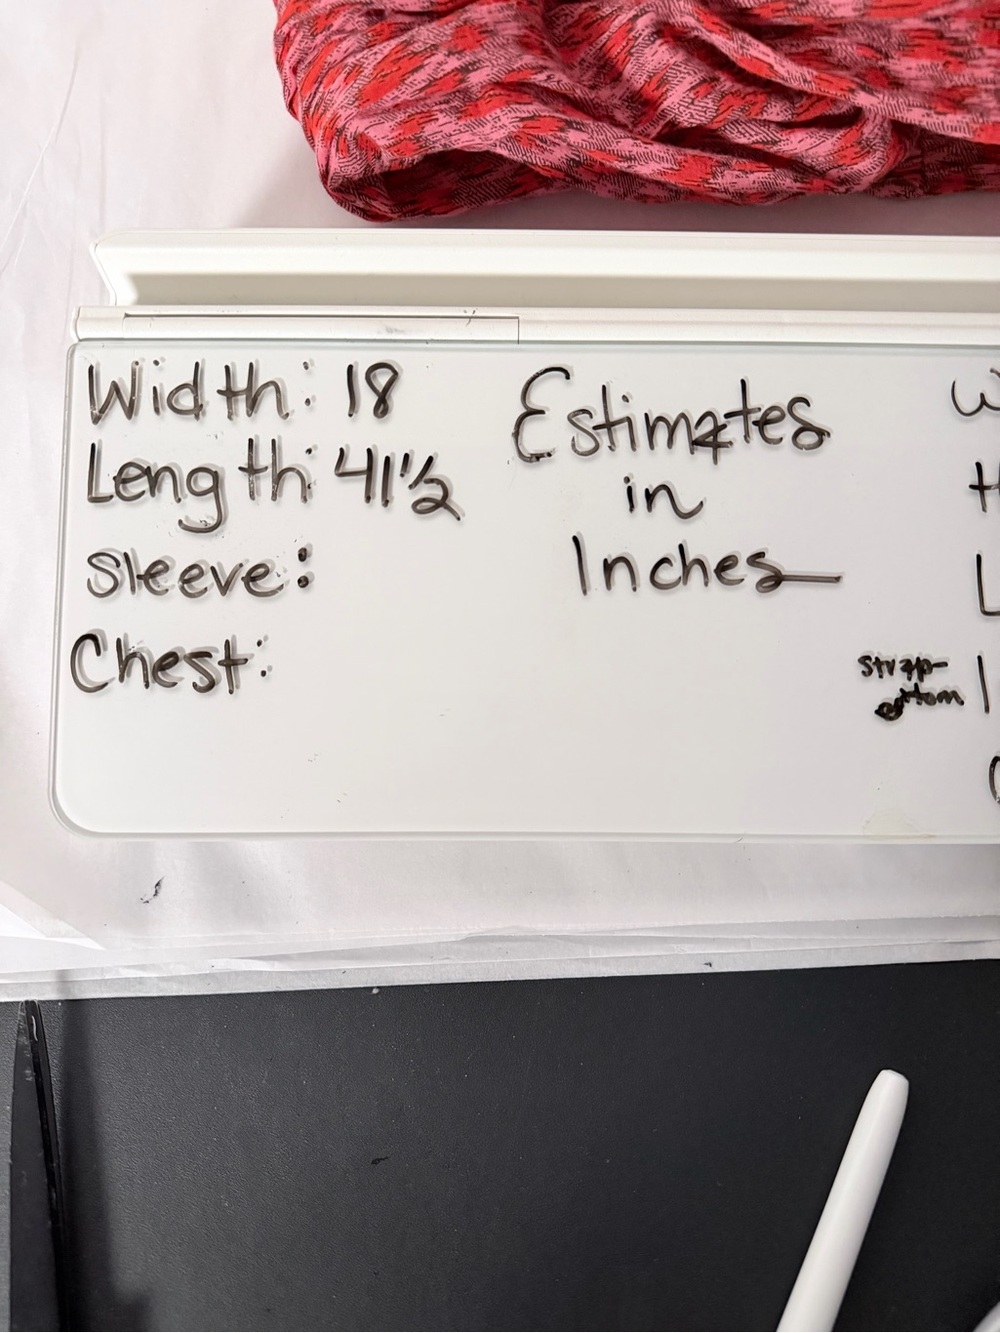 Width: 18
Length: 41 1/2
Sleeve:
Chest:
Estimates
in
Inches
W
H
L
strap-